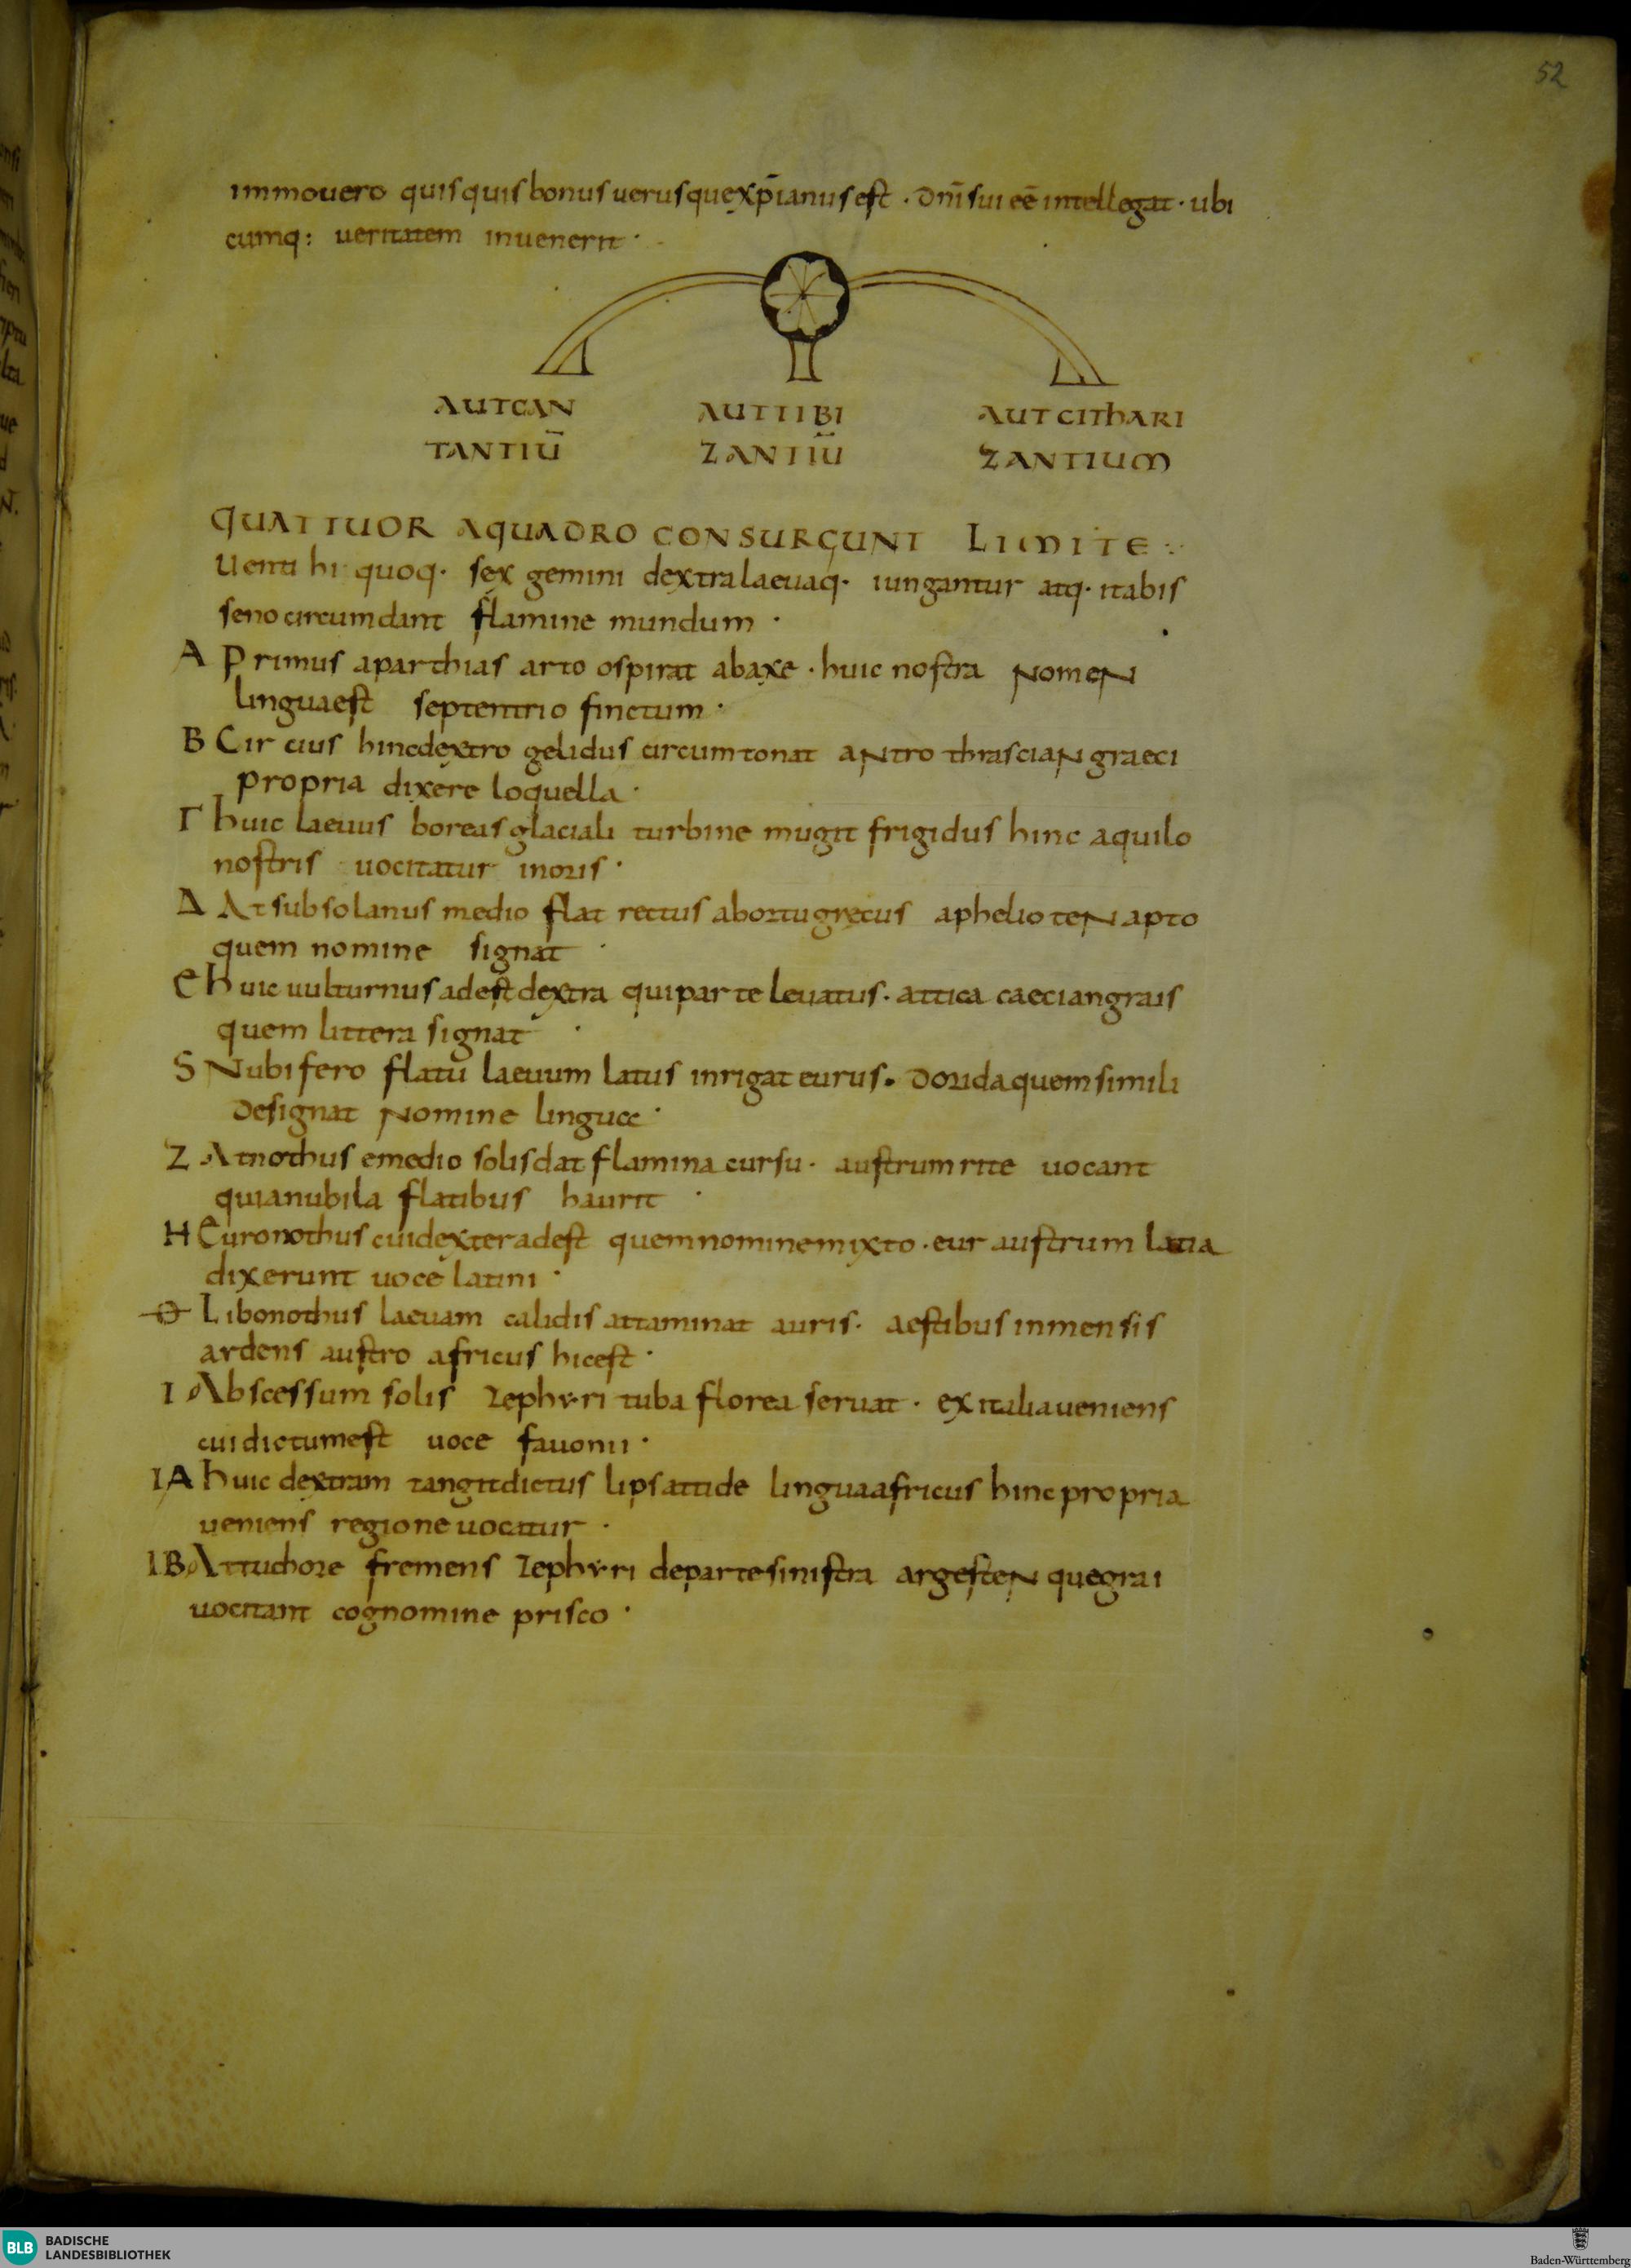 52
immouero quisquis bonus uerusque xp̄ianus est · dn̄i sui eē intellegat · ubi
cumq: ueritatem inuenerit ·
AUT CAN AUT TIBI AUT CITHARI
TANTIŪ ZANTIŪ ZANTIUM
QUATTUOR A QUADRO CONSURGUNT LIMITE :·
Uenti hi quoq· sex gemini dextra laeuaq· iungantur atq· ita bis
seno circumdant flamine mundum ·
A Primus aparthias arto ospirat ab axe · huic nostra nomen
lingua est septentrio finctum ·
B Circius hinc dextro gelidus circumtonat antro thrascian graeci
propria dixere loquella ·
Γ huic laeuus boreas glaciali turbine mugit frigidus hinc aquilo
nostris uocitatur inoris ·
Δ At subsolanus medio flat rectus ab ortu grecus aphelioten apto
quem nomine signat ·
E huic uulturnus adest dextra qui parte leuatus · attica caecian grais
quem littera signat ·
S Nubifero flatū laeuum latus inrigat eurus · dorida quem simili
designat nomine linguae ·
Z At nothus e medio solis dat flamina cursu · austrum rite uocant
quia nubila flatibus haurit ·
H Euronothus cui dexter adest quem nomine mixto · eur austrum latia
dixerunt uoce latini ·
Θ Libonothus laeuam calidis attaminat auris · aestibus inmensis
ardens austro africus hic est ·
I Abscessum solis zephyri tuba florea seruat · ex italia ueniens
cui dictum est uoce fauonii ·
IA huic dextram tangit dictus lips attide lingua africus hinc propria
ueniens regione uocatur ·
IB At tu chore fremens zephyri de parte sinistra argesten que grai
uocitant cognomine prisco ·
BLB BADISCHE
LANDESBIBLIOTHEK
Baden-Württemberg